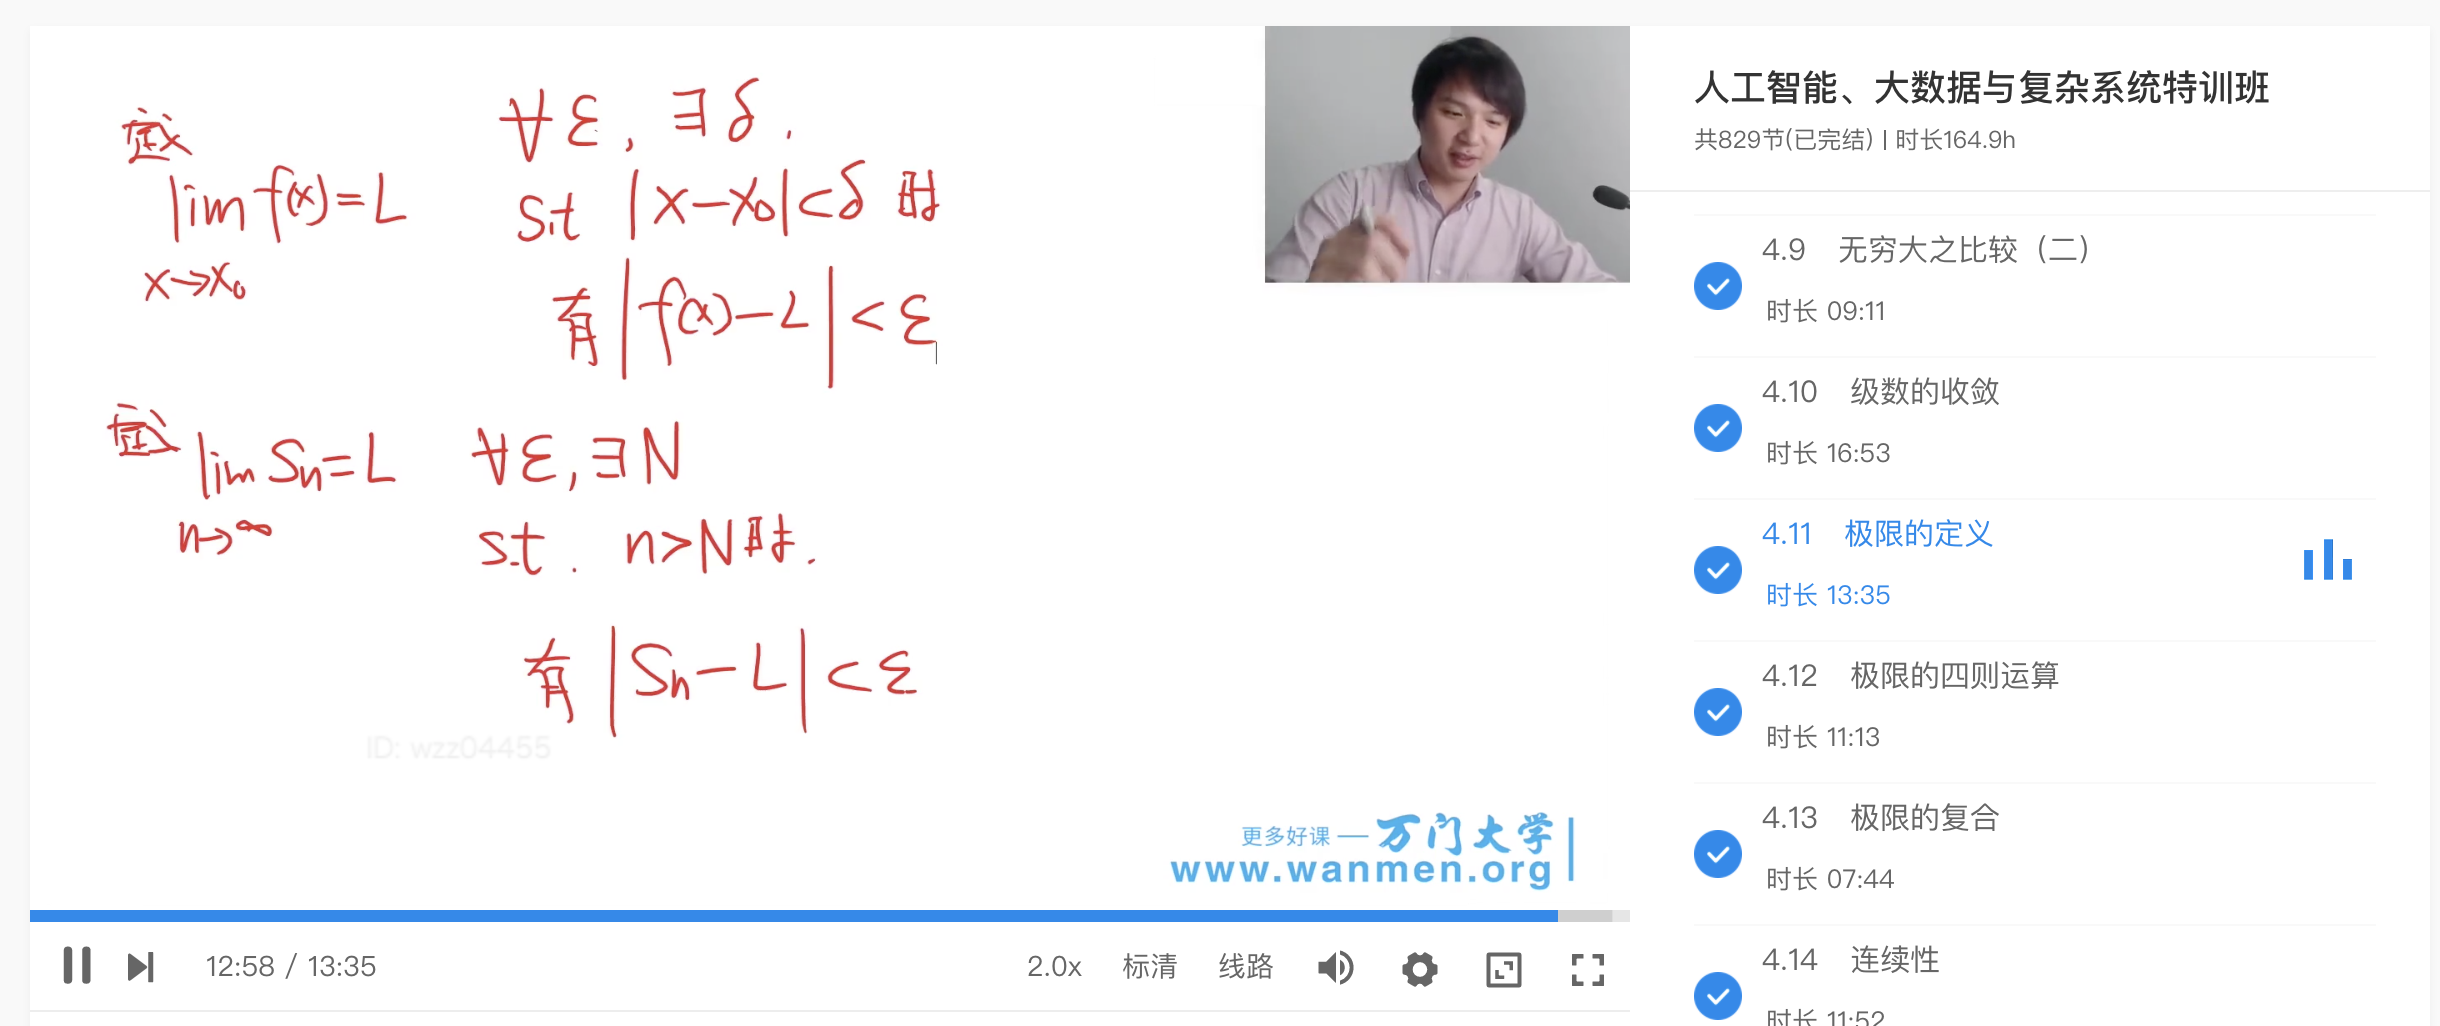 定义
∀ε, ∃δ.
lim f(x)=L
s.t |x-x₀|<δ 时
x→x₀
有|f(x)-L|<ε
定义
lim Sn=L
∀ε, ∃N
n→∞
s.t. n>N时.
有|Sn-L|<ε
ID: wzz04455
更多好课 — 万门大学
www.wanmen.org
12:58 / 13:35
2.0x 标清 线路
人工智能、大数据与复杂系统特训班
共829节(已完结) | 时长164.9h
4.9 无穷大之比较（二）
时长 09:11
4.10 级数的收敛
时长 16:53
4.11 极限的定义
时长 13:35
4.12 极限的四则运算
时长 11:13
4.13 极限的复合
时长 07:44
4.14 连续性
时长 11:52